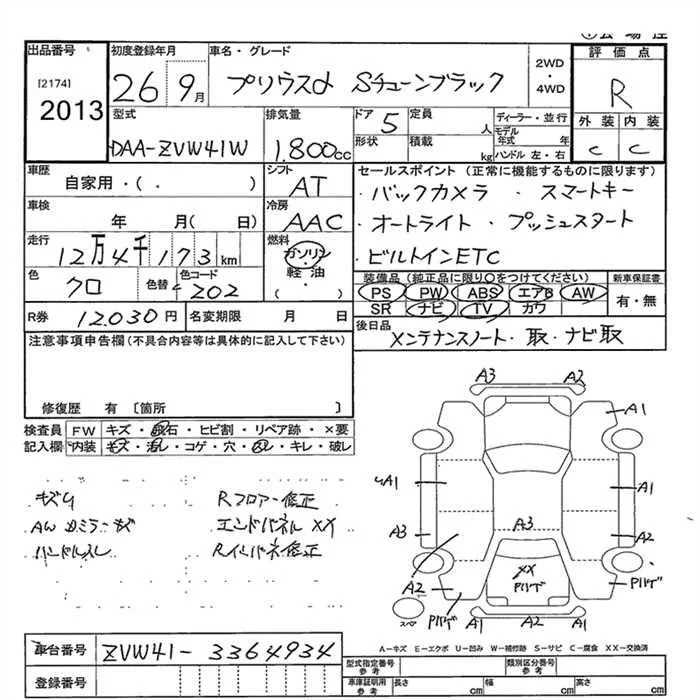 出品番号 初度登録年月 車名・グレード 評価点
[2174] 2013 26 9月 プリウスα Sチューンブラック 2WD ・ 4WD R
型式 排気量 ドア 5 定員 人 ディーラー・並行 外装 内装
DAA-ZVW41W 1.800cc 形状 積載 kg モデル年式 年 ハンドル 左・右 C C
車歴 シフト セールスポイント (正常に機能するものに限ります)
自家用・( . ) AT ・バックカメラ ・スマートキー
車検 年 月( 日) 冷房 AAC ・オートライト ・プッシュスタート
走行 12万4千173km 燃料 ガソリン ・ビルトインETC
色 クロ 色替 色コード 202 軽油 ・( ) 装備品 (純正品に限り○をつけてください) 新車保証書
PS PW ABS エアB AW 有・無
SR ナビ TV カワ
R券 12.030円 名変期限 月 日 後日品 メンテナンスノート・取・ナビ取
注意事項申告欄(不具合内容等は具体的に記入して下さい)
修復歴 有 [箇所 ]
検査員 FW キズ・飛石・ヒビ割・リペア跡・×要
記入欄 内装 キズ・汚レ・コゲ・穴・スレ・キレ・破レ
キズ Rフロアー修正
AWカミラーキズ エンドパネルXX
ハンドルスレ Rインパネ修正
A3 A2
A1
A1 A1
A3 A3 A2
A2 XX Pハゲ Pハゲ
Pハゲ
スペ A1 A2 A1
A-キズ E-エクボ U-凹み W-補修跡 S-サビ C-腐食 XX-交換済
車台番号 ZVW41-3364934 型式指定番号 参考 類別区分番号 参考
登録番号 車庫証明用 参考 長さ cm 幅 cm 高さ cm